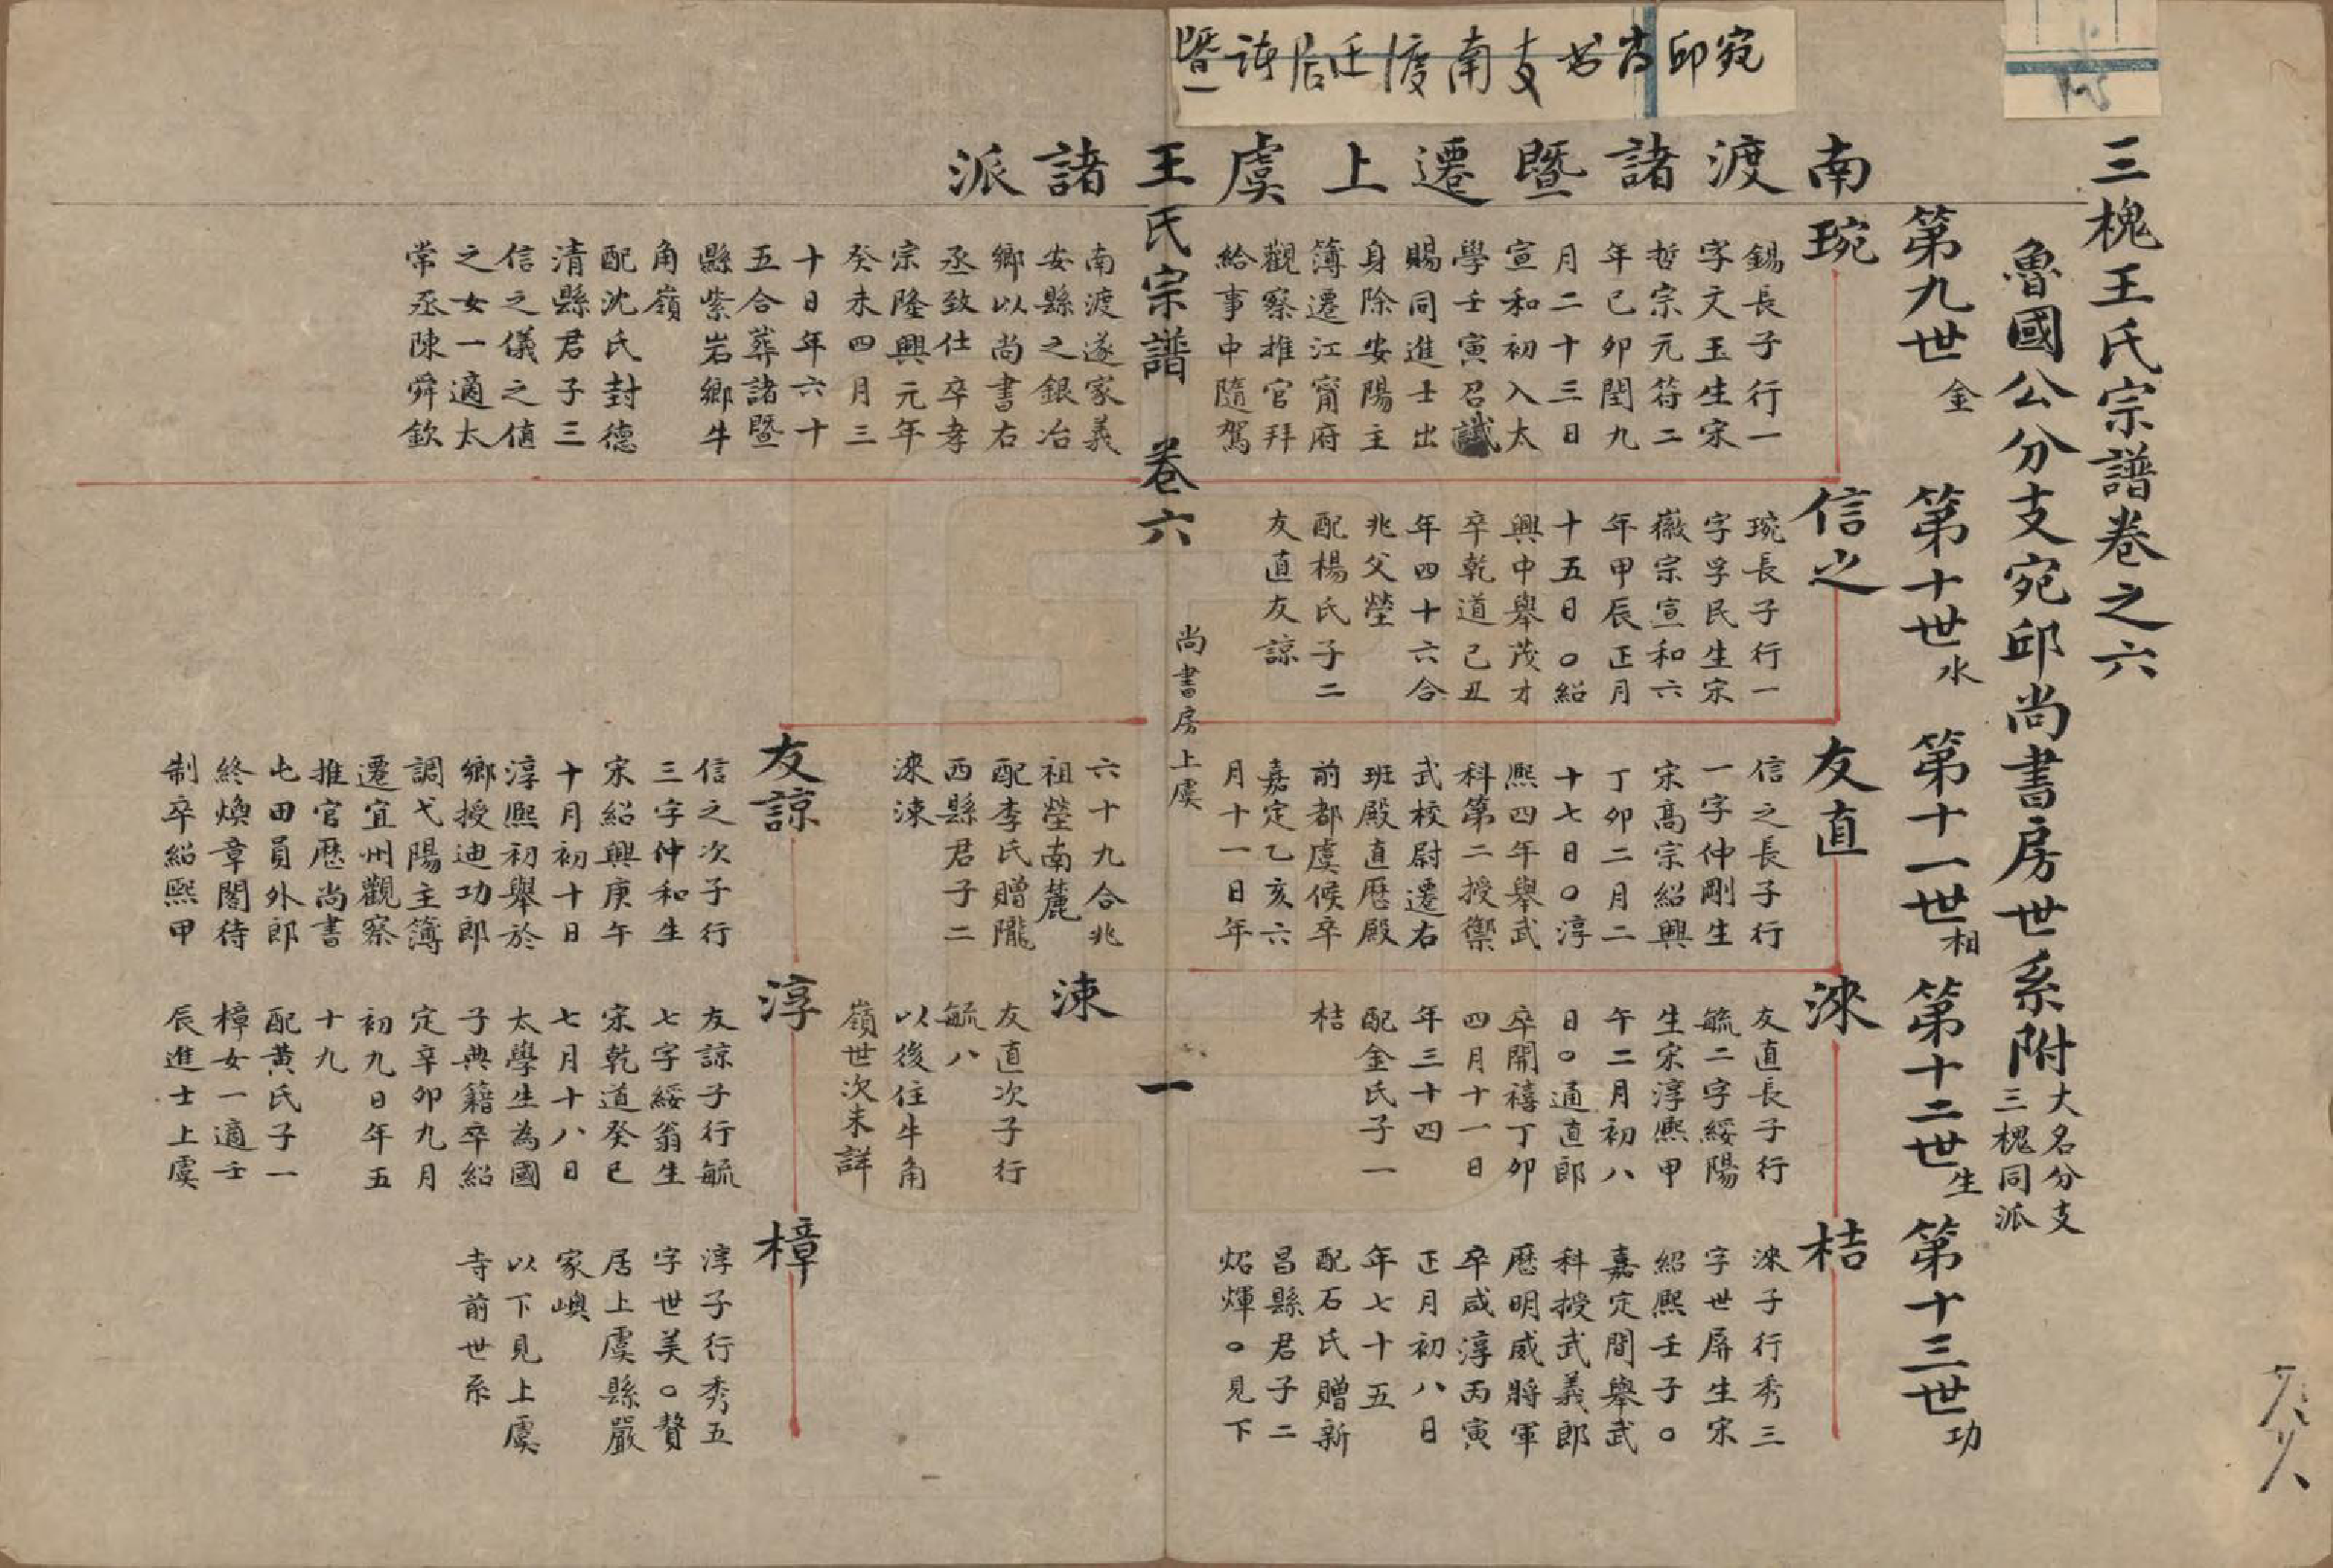 宛邱尚书支南渡迁居诸暨一
三槐王氏宗譜卷之六
魯國公分支宛邱尚書房世系附
大名分支
三槐同派
第九世金
第十世水
第十一世相
第十二世生
第十三世功
南渡諸暨遷上虞諸派
琬
錫長子行一
字文玉生宋
哲宗元符二
年己卯閏九
月二十三日
宣和初入太
學壬寅召試
賜同進士出
身除安陽主
簿遷江甯府
觀察推官拜
給事中隨駕
南渡遂家義
安縣之銀冶
鄉以尚書右
丞致仕卒孝
宗隆興元年
癸未四月三
十日年六十
五合葬諸暨
縣紫岩鄉牛
角嶺
配沈氏封德
清縣君子三
信之儀之值
之女一適太
常丞陳舜欽
信之
琬長子行一
字孚民生宋
徽宗宣和六
年甲辰正月
十五日○紹
興中舉茂才
卒乾道己丑
年四十六合
兆父塋
配楊氏子二
友直友諒
友直
信之長子行
一字仲剛生
宋高宗紹興
丁卯二月二
十七日○淳
熙四年舉武
科第二授禦
武校尉遷右
班殿直歷殿
前都虞候卒
嘉定乙亥六
月十一日年
六十九合兆
祖塋南麓
配李氏贈隴
西縣君子二
淶涑
友諒
信之次子行
三字仲和生
宋紹興庚午
十月初十日
淳熙初舉於
鄉授迪功郎
調弋陽主簿
遷宜州觀察
推官歷尚書
屯田員外郎
終煥章閣待
制卒紹熙甲
淶
友直長子行
毓二字綏陽
生宋淳熙甲
午二月初八
日○通直郎
卒開禧丁卯
四月十一日
年三十四
配金氏子一
桔
涑
友直次子行
毓八
以後住牛角
嶺世次未詳
淳
友諒子行毓
七字綏翁生
宋乾道癸巳
七月十八日
太學生為國
子典籍卒紹
定辛卯九月
初九日年五
十九
配黃氏子一
樟女一適壬
辰進士上虞
桔
淶子行秀三
字世屏生宋
紹熙壬子○
嘉定間舉武
科授武義郎
歷明威將軍
卒咸淳丙寅
正月初八日
年七十五
配石氏贈新
昌縣君子二
炤煇○見下
樟
淳子行秀五
字世美○贅
居上虞縣嚴
家嶴
以下見上虞
寺前世系
王氏宗譜 卷六 尚書房上虞 一